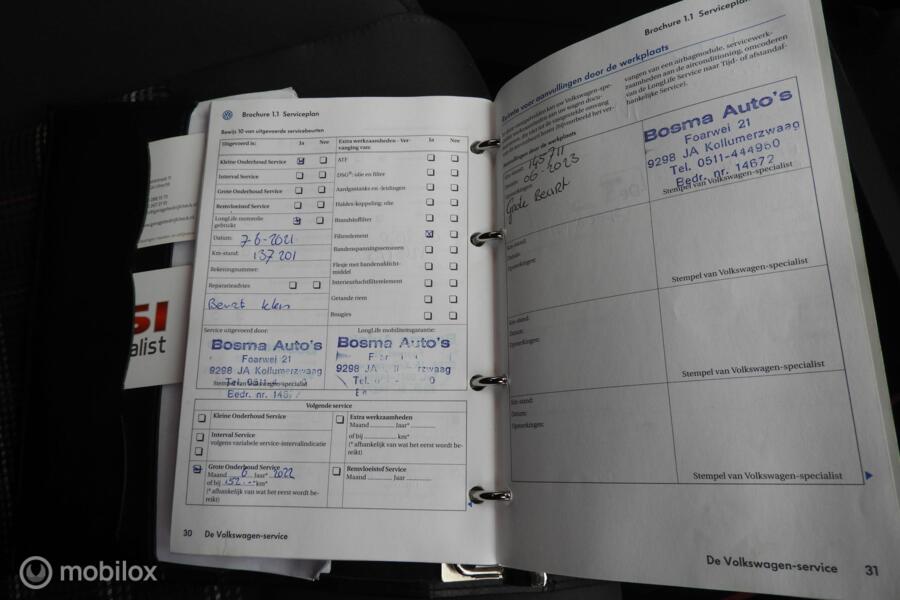 Brochure 1.1 Serviceplan
Bewijs 10 van uitgevoerde servicebeurten
Uitgevoerd is: Ja Nee
Kleine Onderhoud Service
Interval Service
Grote Onderhoud Service
Remvloeistof Service
LongLife motorolie
gebruikt
Datum: 7-6-2021
Km-stand: 137 201
Rekeningnummer:
Reparatieadvies
Beurt klein
Extra werkzaamheden - Ver-
vanging van: Ja Nee
ATF
DSG®: olie en filter
Aardgastanks en -leidingen
Haldex-koppeling: olie
Brandstoffilter
Filterelement
Bandenspanningssensoren
Flesje met bandenafdicht-
middel
Interieurluchtfilterelement
Getande riem
Bougies
Service uitgevoerd door:
Bosma Auto's
Foarwei 21
9298 JA Kollumerzwaag
Stempel van Volkswagen-specialist
LongLife mobiliteitsgarantie:
Bosma Auto's
9298 JA
Volgende service
Kleine Onderhoud Service
Interval Service
volgens variabele service-intervalindicatie
Grote Onderhoud Service
Maand 6 Jaar* 2022
of bij 152.- km*
(* afhankelijk van wat het eerst wordt be-
reikt)
Extra werkzaamheden
Maand Jaar*
of bij km*
(* afhankelijk van wat het eerst wordt be-
reikt)
Remvloeistof Service
Maand Jaar
30 De Volkswagen-service
Brochure 1.1 Serviceplan
Ruimte voor aanvullingen door de werkplaats
vangen van een airbagmodule, servicewerk-
zaamheden aan de airconditioning, omcoderen
van de LongLife Service naar Tijd- of afstandaf-
hankelijke Service).
Aanvullingen door de werkplaats
145711
06-2023
Grote Beurt
Bosma Auto's
Foarwei 21
9298 JA Kollumerzwaag
Tel. 0511-444960
Bedr. nr. 14672
Stempel van Volkswagen-specialist
Km-stand:
Datum:
Opmerkingen:
Stempel van Volkswagen-specialist
Km-stand:
Datum:
Opmerkingen:
Stempel van Volkswagen-specialist
Km-stand:
Datum:
Opmerkingen:
Stempel van Volkswagen-specialist
De Volkswagen-service 31
mobilox